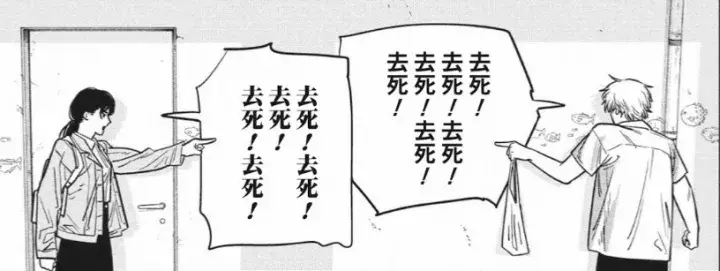 去死！
去死！去死！
去死！去死！
去死！
去死！去死！
去死！
去死！去死！